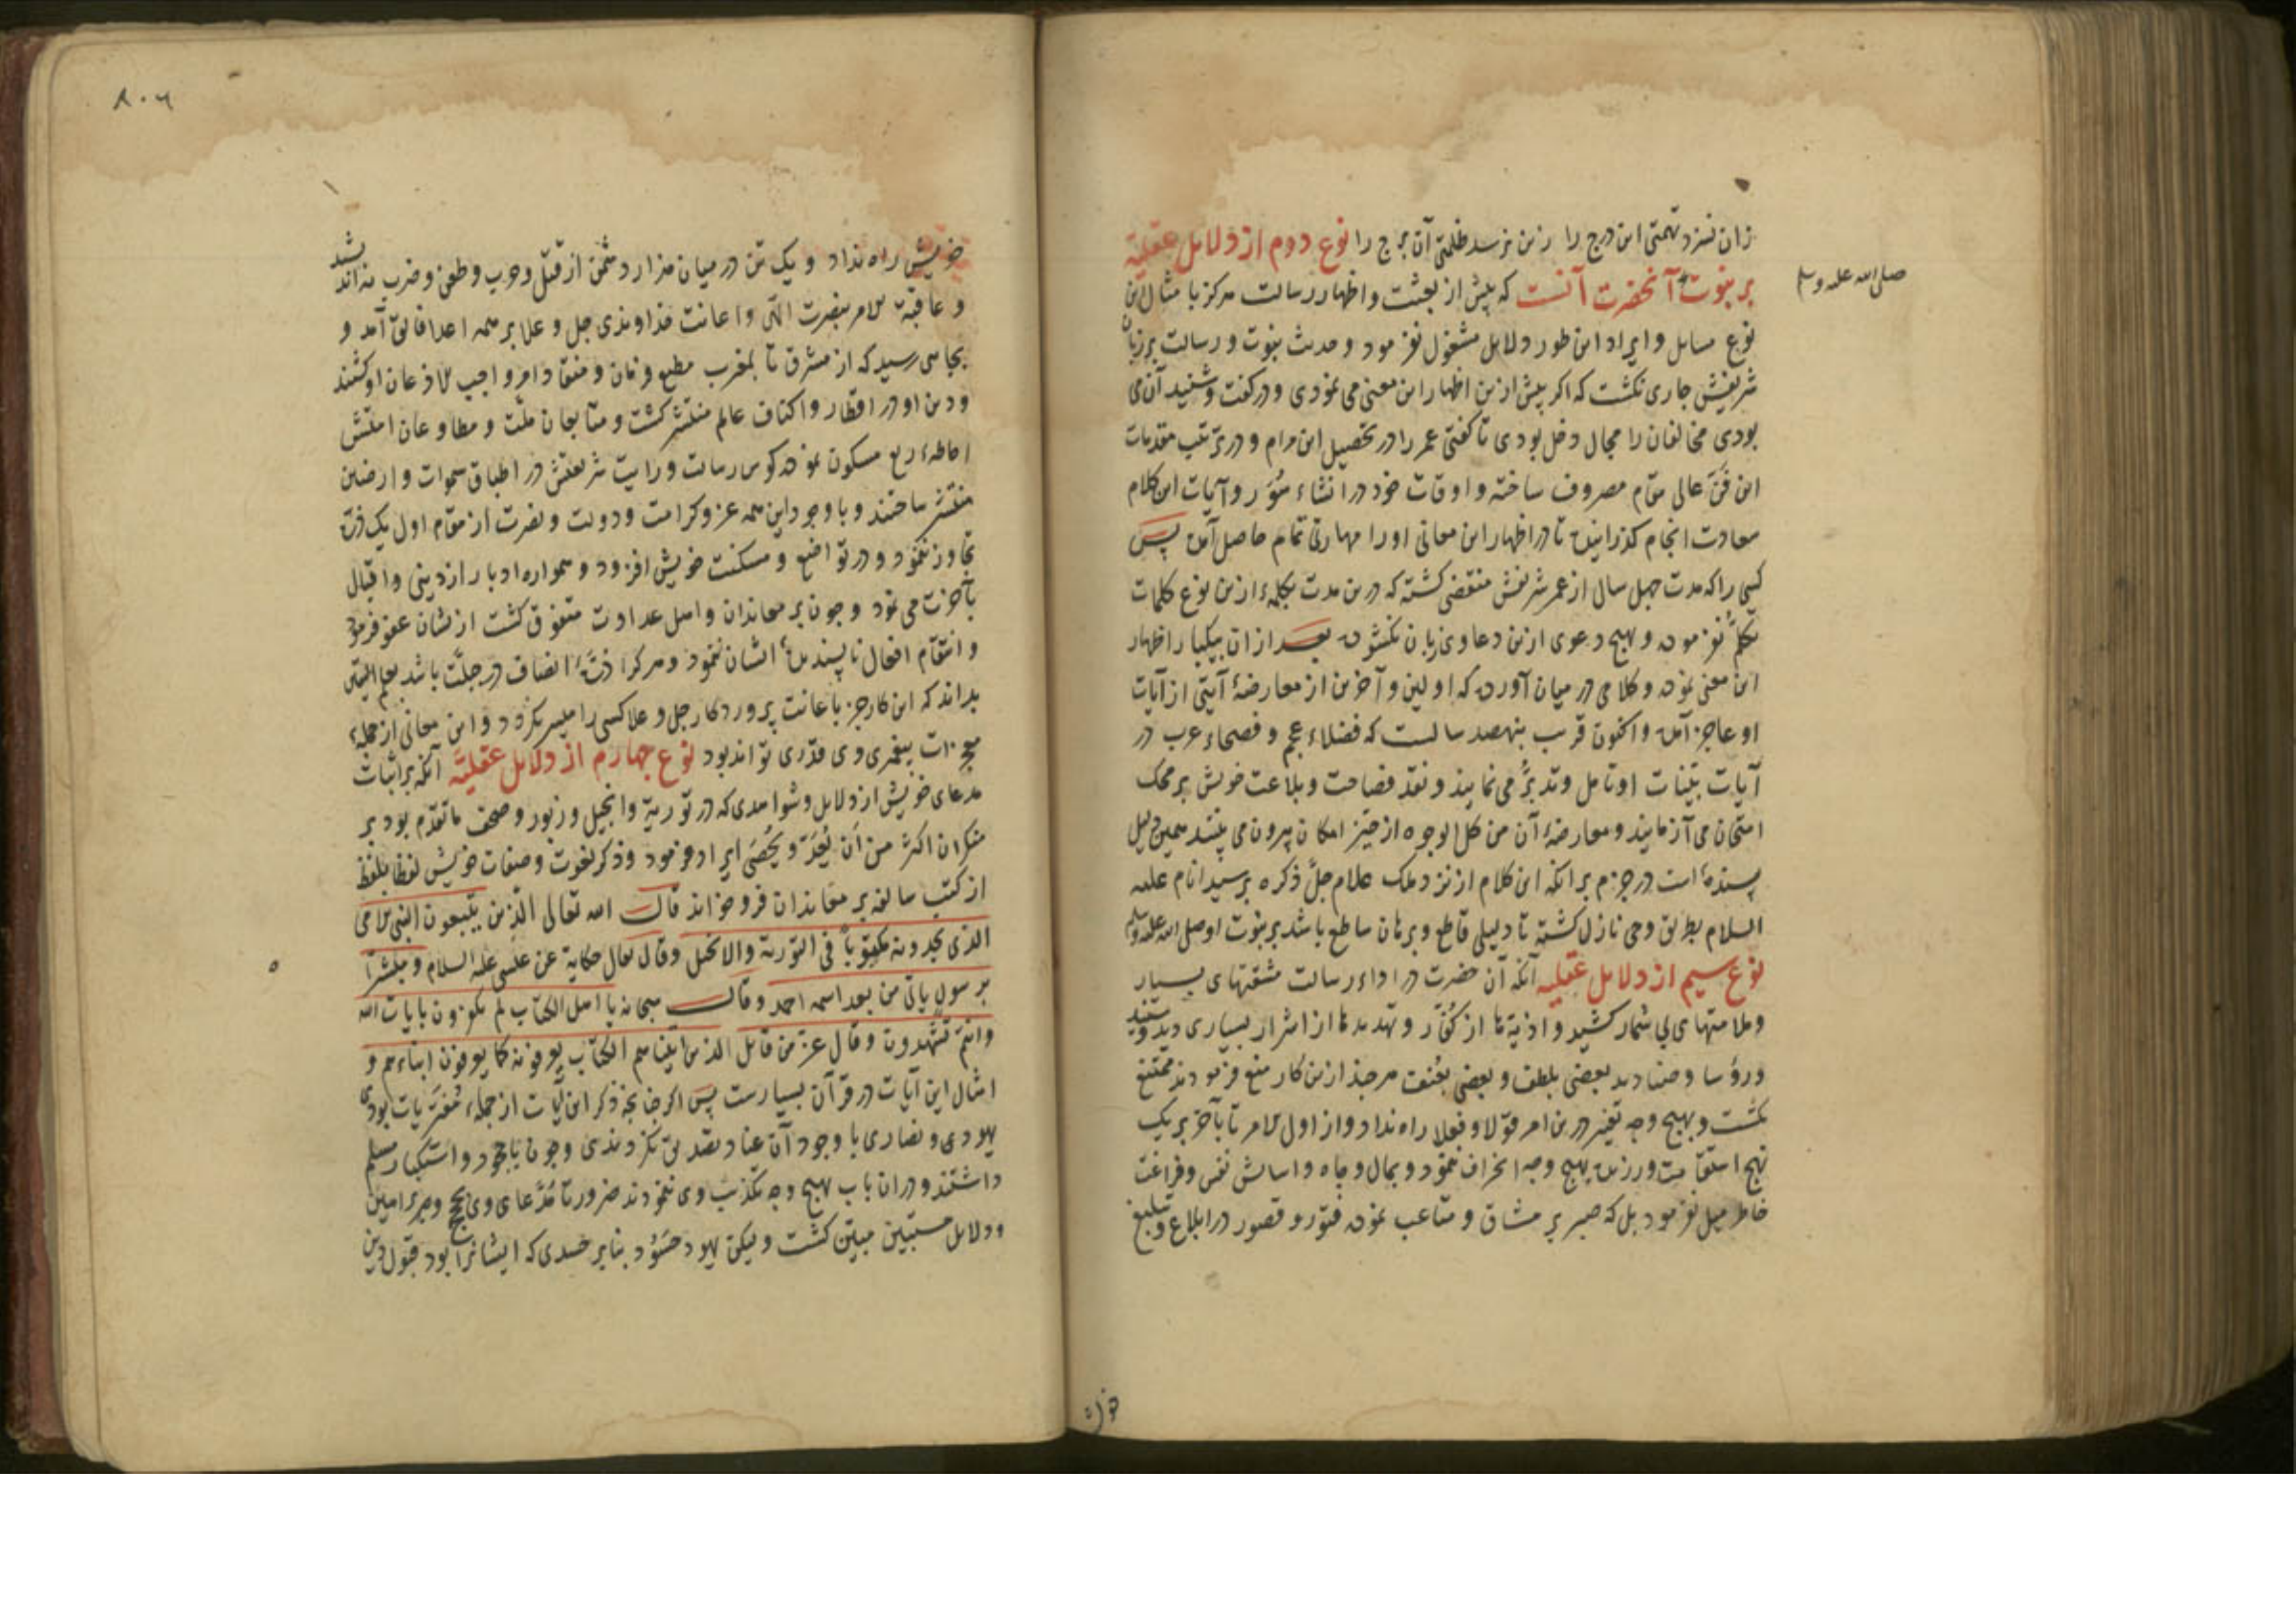 زان نسزد تهمتی این درج را زین نرسد ظلمتی آن برج را نوع دوم از دلایل عقلیّه
بر نبوّت آنحضرت آنست که پیش از بعثت و اظهار رسالت هرکز با مثال این
صلی الله علیه و سلم
نوع مسایل و ایراد این طور دلایل مشغول نفرمود و حدیث نبوت و رسالت بر زبان
شریفش جاری نکشت که اکر پیش ازین اظهار این معنی می نمودی و در کفت و شنید آن می
بودی مخالفان را مجال دخل بودی تا کفتی عمر را در تحصیل این مرام و در ترتیب مقدمات
این فنّ عالی مقام مصروف ساخته و اوقات خود در انشاء سُوَر و آیات این کلام
سعادت انجام کذرانیده تا در اظهار این معانی او را مهارتی تمام حاصل آمده پس
کسی را که مدت چهل سال از عمر شریفش منقضی کشته که درین مدت بکلمهٔ ازین نوع کلمات
تکلّم نفرموده و بهیچ دعوی ازین دعاوی زبان نکشوده بعد ازان بیکبار اظهار
این معنی نموده و کلامی در میان آورده که اولین و آخرین از معارضهٔ آیتی از آیات
او عاجز آمده و اکنون قریب بنهصد سالست که فضلاء عجم و فصحاء عرب در
آیات بیّنات او تامل و تدبّر می نمایند و نقد فصاحت و بلاغت خویش بر محک
امتحان می آزمایند و معارضهٔ آن من کل الوجوه از حیّز امکان بیرون می بینند همین دلیل
بسندهٔ است در جزم برانکه این کلام از نزد ملک علام جلّ ذکره بر سید انام علیه
السلام بطریق وحی نازل کشته تا دلیلی قاطع و برهان ساطع باشد بر نبوت او صلی الله علیه و سلم
نوع سیم از دلایل عقلیه آنکه آن حضرت در اداء رسالت مشقتهای بسیار
و ملامتهای بی شمار کشید و اذیةها از کفّار و تهدیدها از اشرار بسیاری دید و شنید
و رؤسا و صنادید بعضی بلطف و بعضی بعُنف هرچند ازین کار منع فرمودند ممتنع
نکشت و بهیچ وجه تغیر درین امر قولا و فعلا راه نداد و از اول الامر تا بآخر بر یک
نهج استقامت ورزیده بهیچ وجه انحراف ننمود و بمال و جاه و اسایش نفس و فراغت
خاطر میل نفرمود بل که صبر بر مشاق و متاعب نموده فتور و قصور در ابلاغ و تبلیغ
خویش راه نداد و یک تن در میان هزار دشمن از قتل و حرب و طعن و ضرب
و عاقبة الامر بنصرت الهی و اعانت خداوندی جل و علا بر همه اعدا فایق آمد و
بجایی رسید که از مشرق تا بمغرب مطیع فرمان و منقاد امر واجب الاذعان او کشتند
و دین او در اقطار و اکناف عالم منتشر کشت و متابعان ملّت و مطاوعان امتش
احاطهٔ ربع مسکون نموده کوس رسالت و رایت شریعتش در اطباق سموات و ارضین
منتشر ساختند و با وجود این همه عز و کرامت و دولت و نصرت از مقام اول یک ذره
تجاوز ننمود و در تواضع و مسکنت خویش افزود و همواره ادبار از دینی و اقبال
بآخرت می نمود و چون بر معاندان و اهل عداوت متفوق کشت ازیشان عفو فرمود
و انتقام افعال ناپسندیدهٔ ایشان ننمود و هرکرا ذرّهٔ انصاف در جبلّت باشد بعلم الیقین
بداند که این کار جز باعانت پروردکار جل و علا کسی را میسر نکردد و این معانی از جملهٔ
معجزات پیغمبری وی قدری تواند بود نوع چهارم از دلایل عقلیّه آنکه بر اثبات
مدعای خویش از دلایل و شواهدی که در توریة و انجیل و زبور و صحف ما تقدّم بود بر
منکران اکثر من أن یُعَدّ و یُحصَی ایراد فرمود و ذکر نعوت و صفات خویش لفظا بلفظ
از کتب سالفه بر معاندان فرو خواند قال الله تعالی الذین یتبعون النبی الامی
الذی یجدونه مکتوباً فی التوریة والانجیل وقال تعال حکایة عن عیسی علیه السلام و مبشراً
برسول یاتی من بعد اسمه احمد و قال سبحانه یا اهل الکتاب لم تکفرون بایات الله
وانتم تشهدون وقال عز من قایل الذین اتیناهم الکتاب یعرفونه کما یعرفون ابناءهم و
امثال این آیات در قرآن بسیارست پس اکر چنانچه ذکر این آیات از جملهٔ مُفتریات بودی
یهودی و نصاری با وجود آن عناد تصدیق نکردندی و چون با جحود و استکبار مسلم
داشتند و دران باب بهیچ وجه تکذیب وی ننمودند ضرورتا مُدّعای وی بحجج و براهین
و دلایل مستبین مبیّن کشت و لیکن یهود حسود بنابر حسدی که ایشانرا بود قبول دین